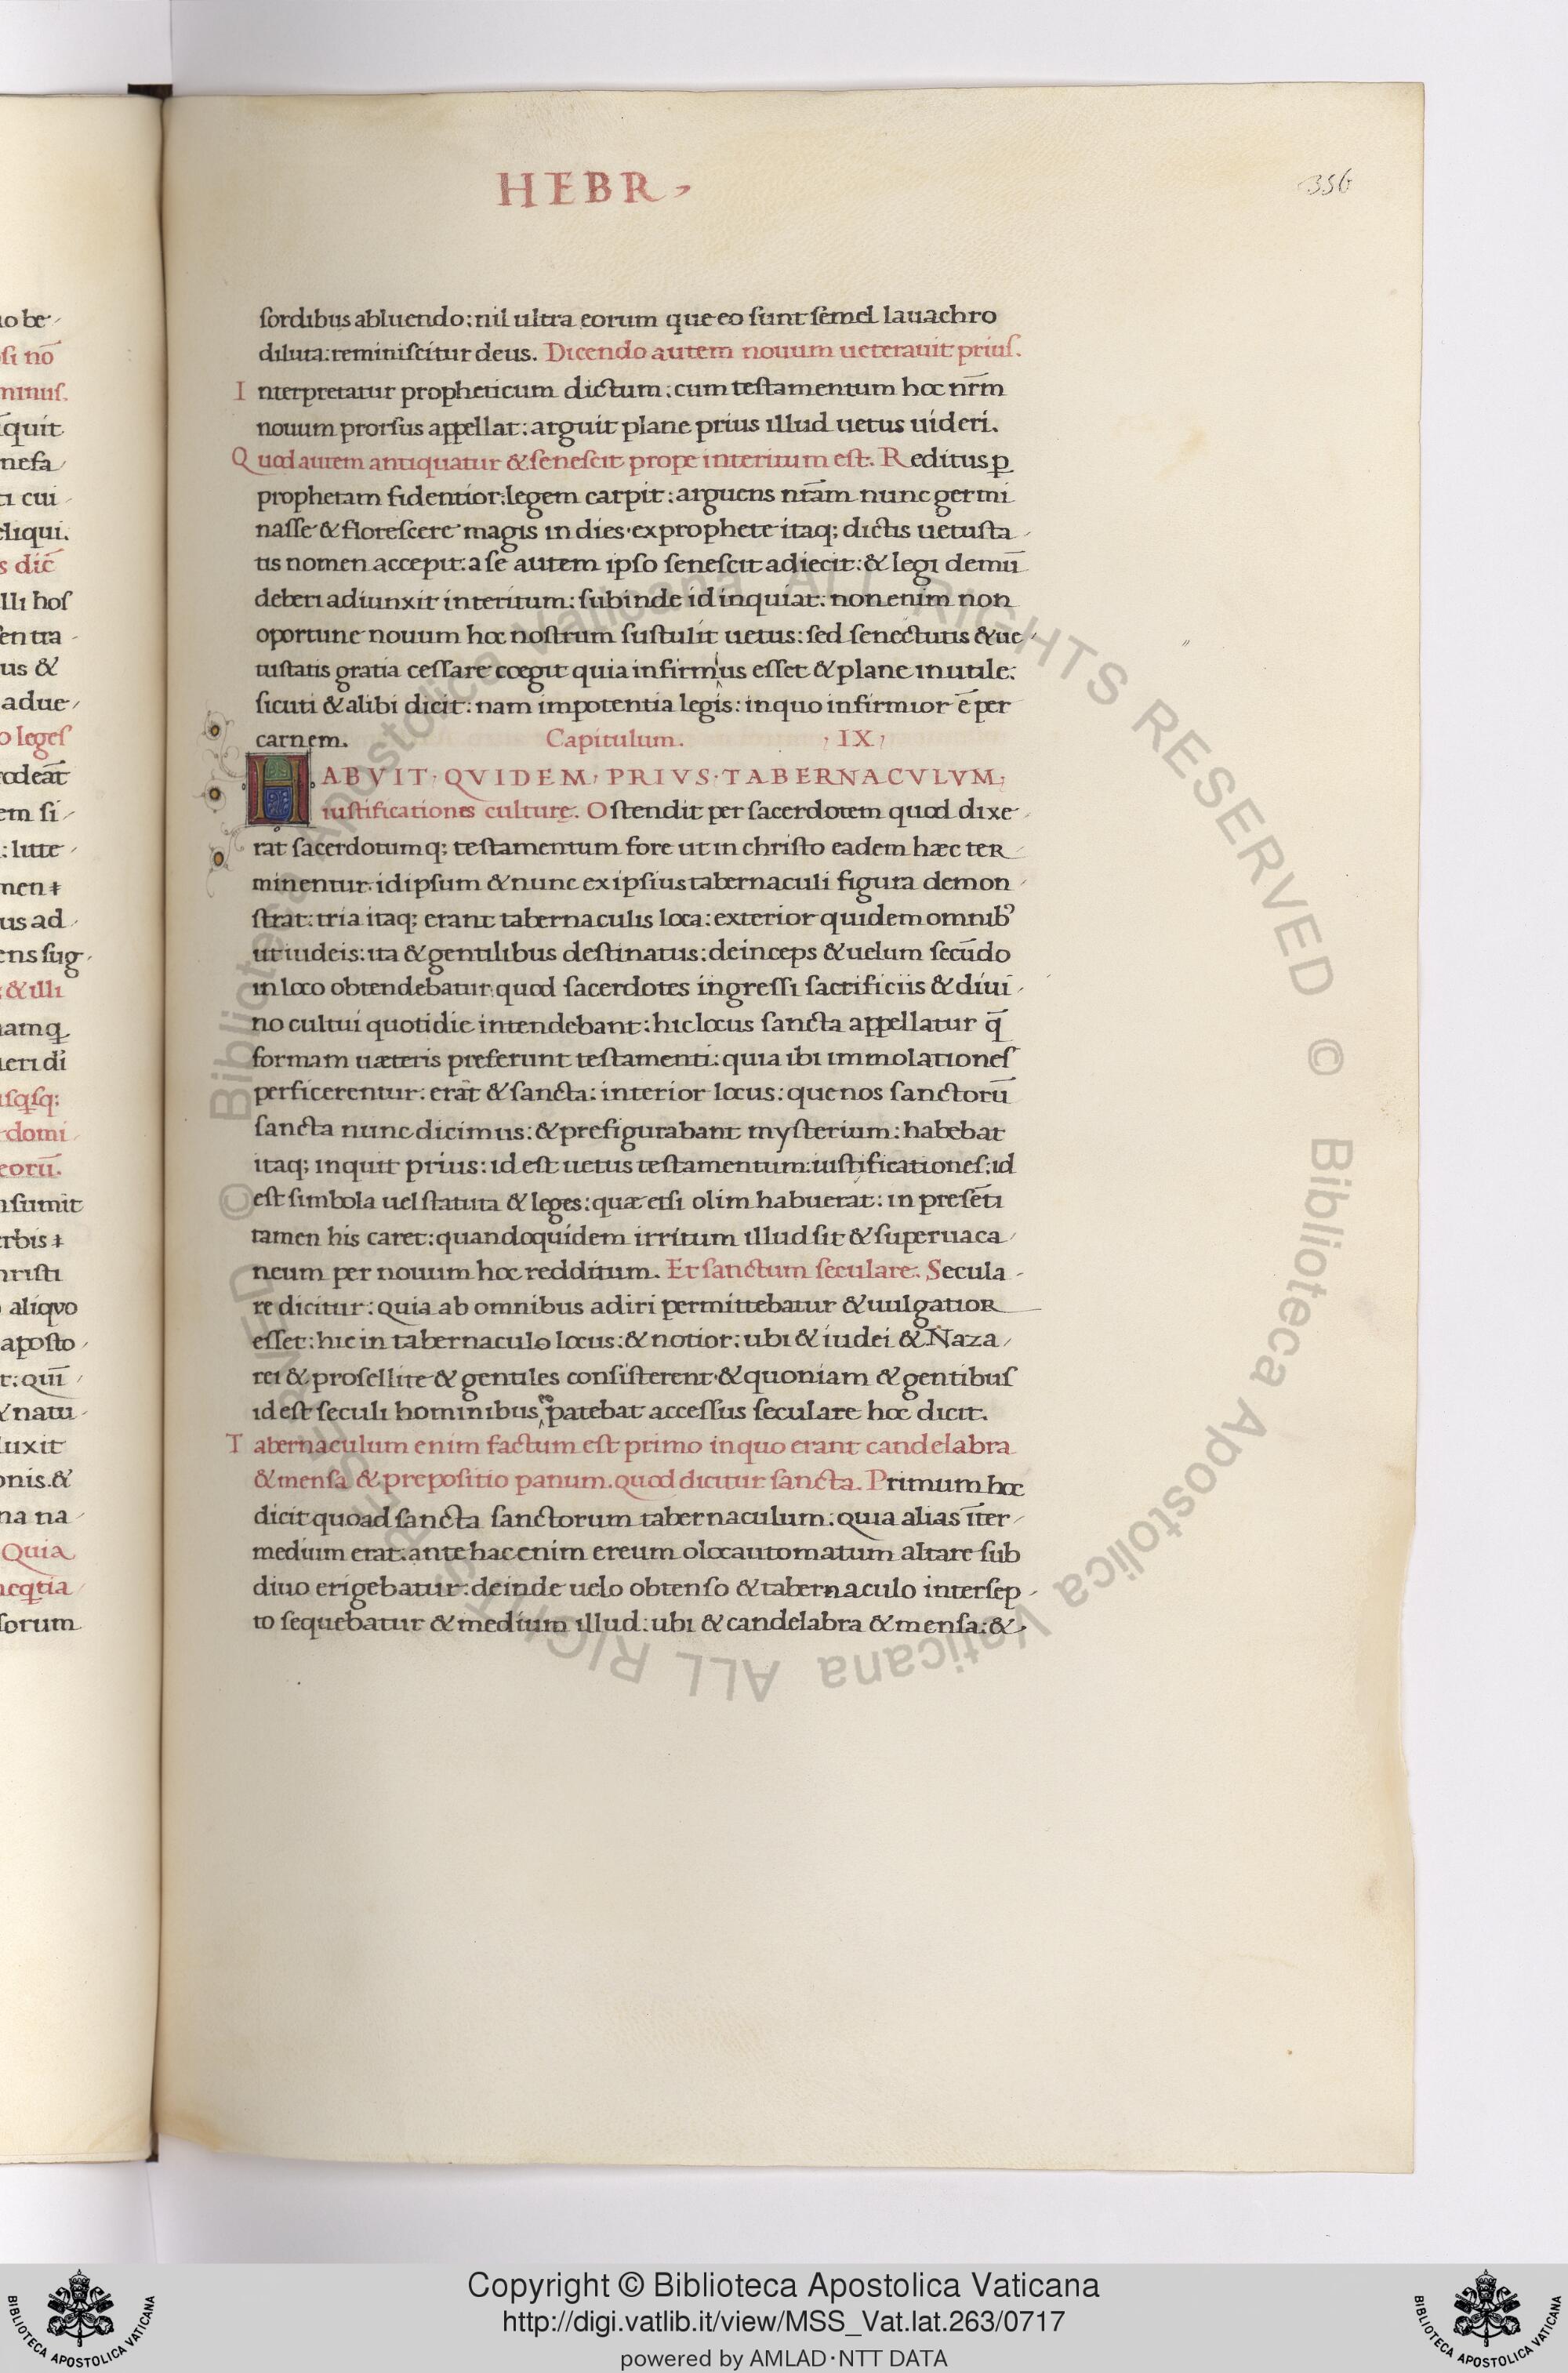 HEBR,
356
sordibus abluendo: nil ultra eorum que eo sunt semel lauachro
diluta: reminiscitur deus. Dicendo autem nouum ueterauit prius.
Interpretatur propheticum dictum: cum testamentum hoc nr̄m
nouum prorsus appellat: arguit plane prius illud uetus uideri.
Quod autem antiquatur & senescit prope interitum est. Reditus ꝑ
prophetam fidentior: legem carpit: arguens nr̄am nunc germi
nasse & florescere magis in dies. ex prophete itaq; dictis uetusta
tis nomen accepit: a se autem ipso senescit adiecit: & legi demū
deberi adiunxit interitum: subinde id inquiat: non enim non
oportune nouum hoc nostrum sustulit uetus: sed senectutis & ue
tustatis gratia cessare coegit quia infirmius esset & plane inutile:
sicuti & alibi dicit: nam impotentia legis: in quo infirmior ē per
carnem. Capitulum. IX,
HABVIT, QVIDEM, PRIVS, TABERNACVLVM,
iustificationes culturę. Ostendit per sacerdotem quod dixe
rat sacerdotumq; testamentum fore ut in christo eadem hæc ter
minentur. id ipsum & nunc ex ipsius tabernaculi figura demon
strat: tria itaq; erant tabernaculis loca: exterior quidem omnibꝰ
ut iudeis: ita & gentilibus destinatus: deinceps & uelum secūdo
in loco obtendebatur. quod sacerdotes ingressi sacrificiis & diui
no cultui quotidie intendebant: hic locus sancta appellatur q̄
formam uæteris preferunt testamenti: quia ibi immolationes
perficerentur: erāt & sancta: interior locus: que nos sanctorū
sancta nunc dicimus: & prefigurabant mysterium: habebat
itaq; inquit prius: id est uetus testamentum: iustificationes: id
est simbola uel statuta & leges: quæ etsi olim habuerat: in presēti
tamen his caret: quandoquidem irritum illud sit & superuaca
neum per nouum hoc redditum. Et sanctum seculare. Secula
re dicitur: quia ab omnibus adiri permittebatur & uulgatior
esset: hic in tabernaculo locus: & notior: ubi & iudei & Naza
rei & prosellite & gentiles consisterent. & quoniam & gentibus
id est seculi hominibus patebat accessus seculare hoc dicit.
Tabernaculum enim factum est primo in quo erant candelabra
& mensa & prepositio panum. quod dicitur sancta. Primum hoc
dicit quoad sancta sanctorum tabernaculum: quia alias īter
medium erat. ante hac enim ereum olocautomatum altare sub
diuo erigebatur: deinde uelo obtenso & tabernaculo intersep
to sequebatur & medium illud: ubi & candelabra & mensa: &
Copyright © Biblioteca Apostolica Vaticana
http://digi.vatlib.it/view/MSS_Vat.lat.263/0717
powered by AMLAD·NTT DATA